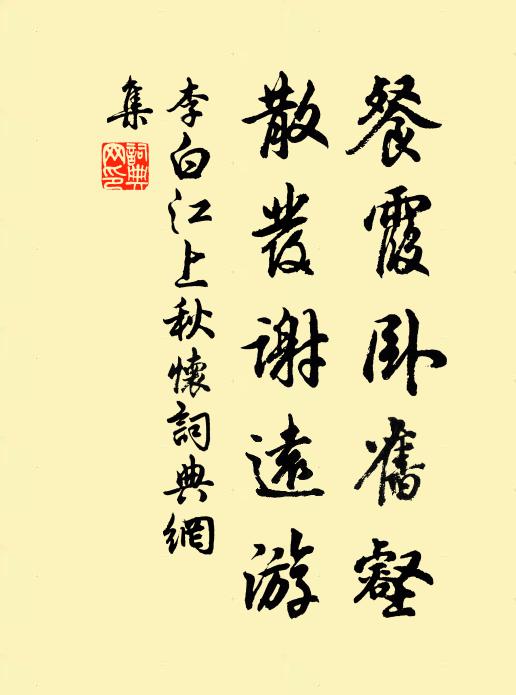 餐霞卧舊壑
散發謝遠游
李白江上秋懷詞典網
集
詞典
网印